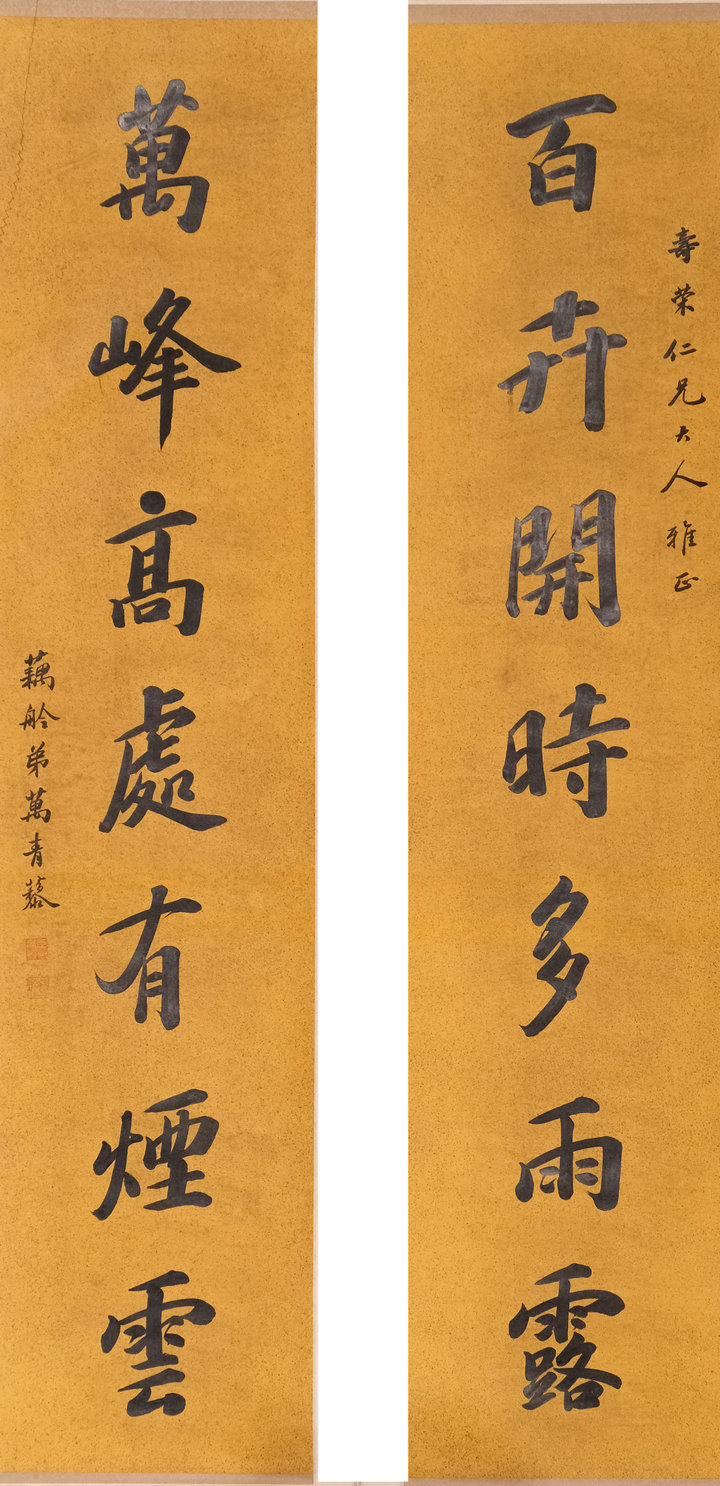 壽荣仁兄大人雅正
百卉開時多雨露
萬峰高處有煙雲
藕舲弟萬青藜